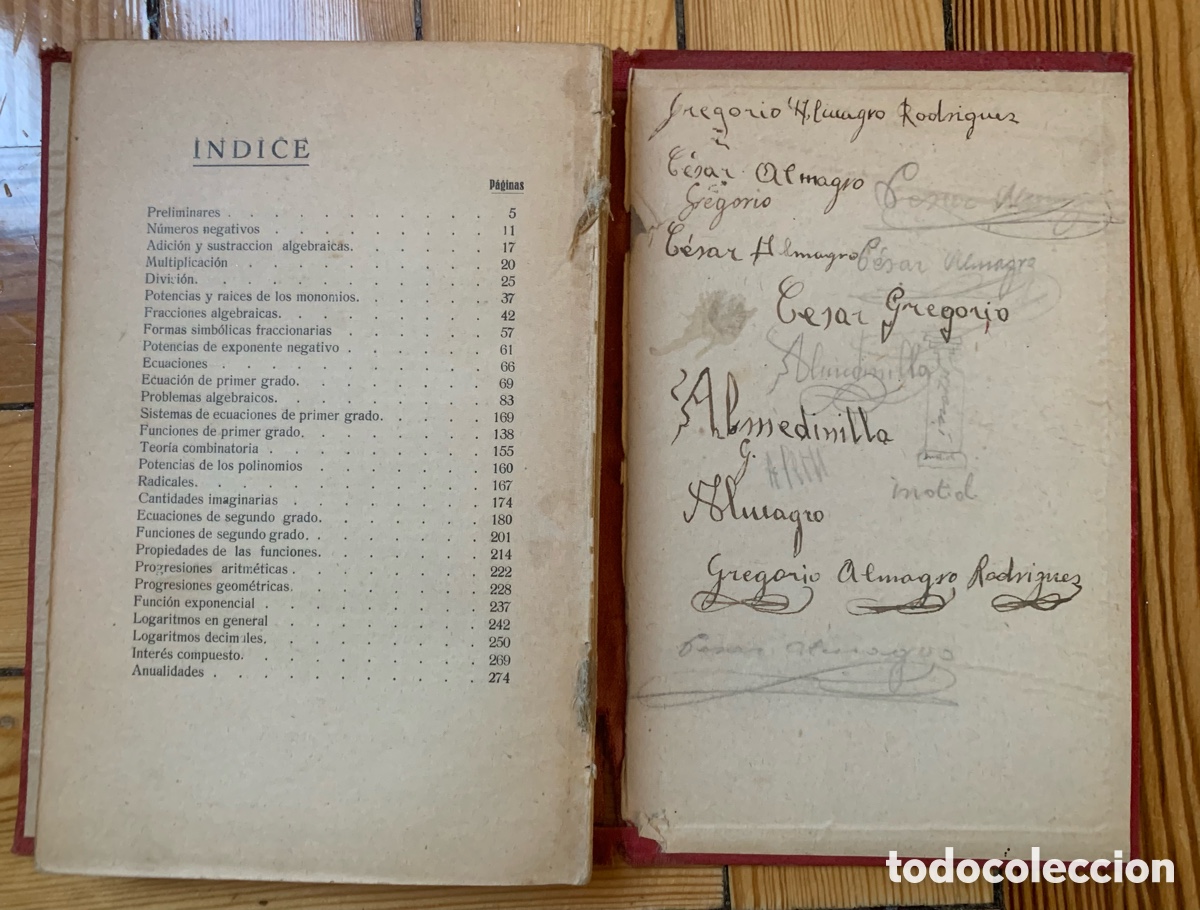 INDICE
Páginas
Preliminares . . . . . . . . . . 5
Números negativos . . . . . . . . . 11
Adición y sustraccion algebraicas. . . . . . 17
Multiplicación . . . . . . . . . . 20
División. . . . . . . . . . . 25
Potencias y raices de los monomios. . . . . . 37
Fracciones algebraicas. . . . . . . . . 42
Formas simbólicas fraccionarias . . . . . . 57
Potencias de exponente negativo . . . . . . 61
Ecuaciones . . . . . . . . . . 66
Ecuación de primer grado. . . . . . . . 69
Problemas algebraicos. . . . . . . . . 83
Sistemas de ecuaciones de primer grado. . . . . 169
Funciones de primer grado. . . . . . . . 138
Teoría combinatoria . . . . . . . . . 155
Potencias de los polinomios . . . . . . . 160
Radicales. . . . . . . . . . . 167
Cantidades imaginarias . . . . . . . . 174
Ecuaciones de segundo grado. . . . . . . 180
Funciones de segundo grado. . . . . . . . 201
Propiedades de las funciones. . . . . . . 214
Progresiones aritméticas . . . . . . . . 222
Progresiones geométricas. . . . . . . . 228
Función exponencial . . . . . . . . . 237
Logaritmos en general . . . . . . . . 242
Logaritmos decimales, . . . . . . . . 250
Interés compuesto. . . . . . . . . . 269
Anualidades . . . . . . . . . . 274
Gregorio Almagro Rodriguez
César Almagro
Gregorio
Cesar Almagro
César Almagro
César Almagro
Cesar Gregorio
Almedinilla
Almedinilla
G.
Almagro
Gregorio Almagro Rodriguez
Cesar Almagro
todocoleccion